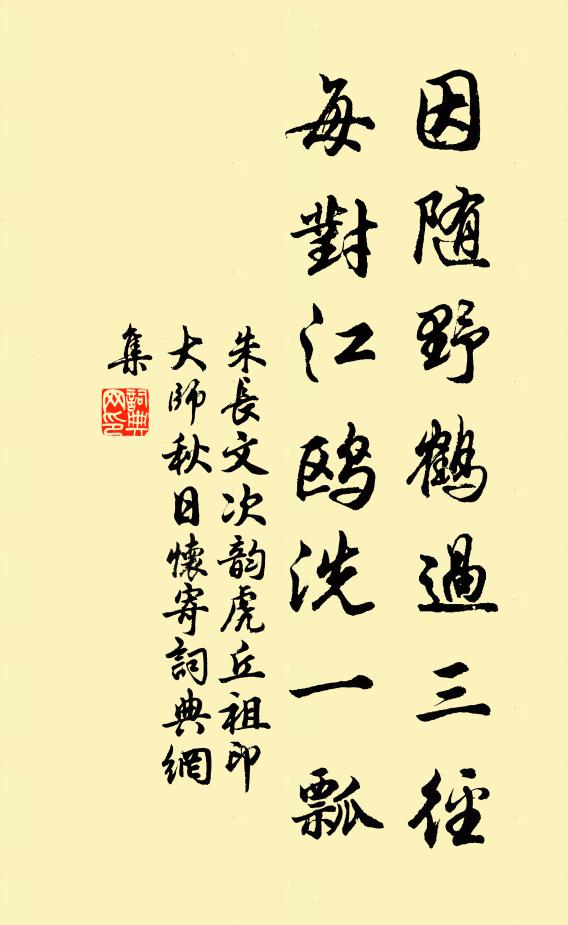 因随野鶴過三徑
每對江鸥洗一瓢
朱長文次韵虎丘祖印
大師秋日懷寄詞典網
集
詞典
网印